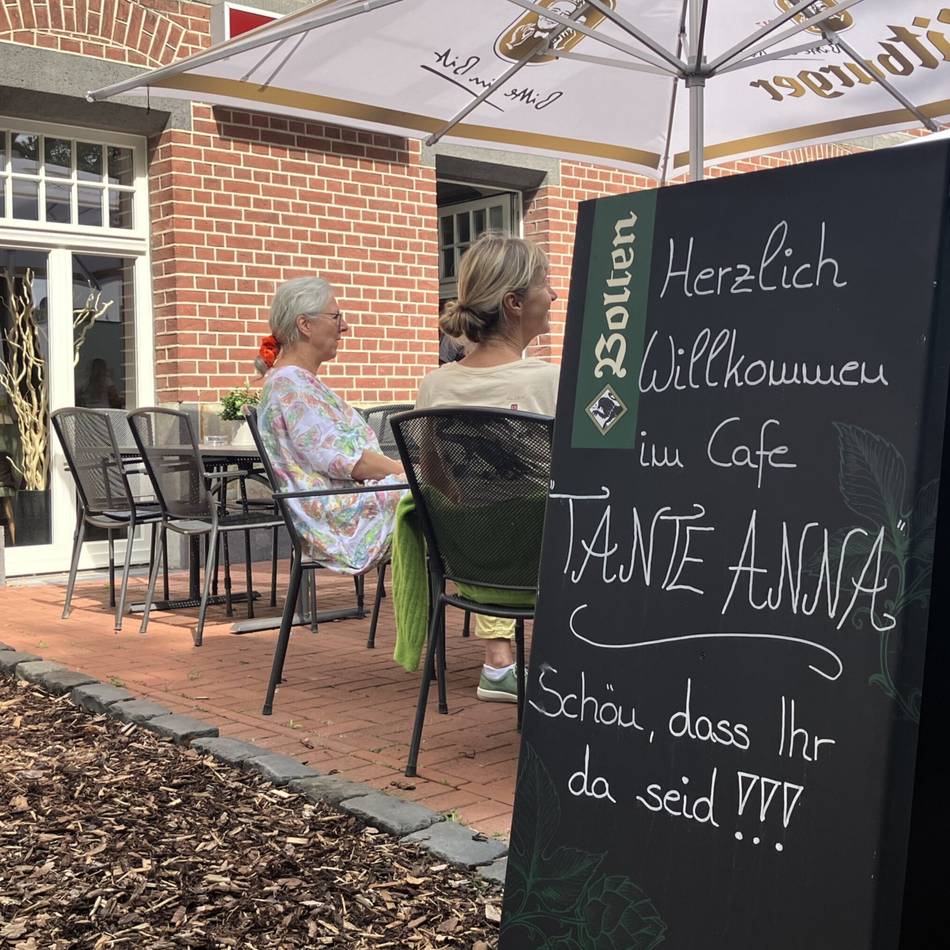 Bitte ein Bit
Bitburger
Bolten
Herzlich
Willkommen
im Cafe
"TANTE ANNA"
Schön, dass Ihr
da seid !!!